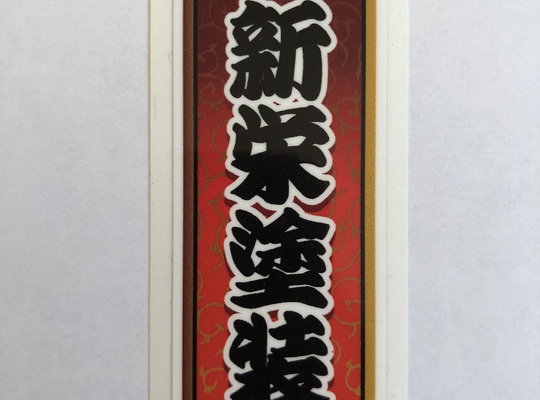 新栄塗装